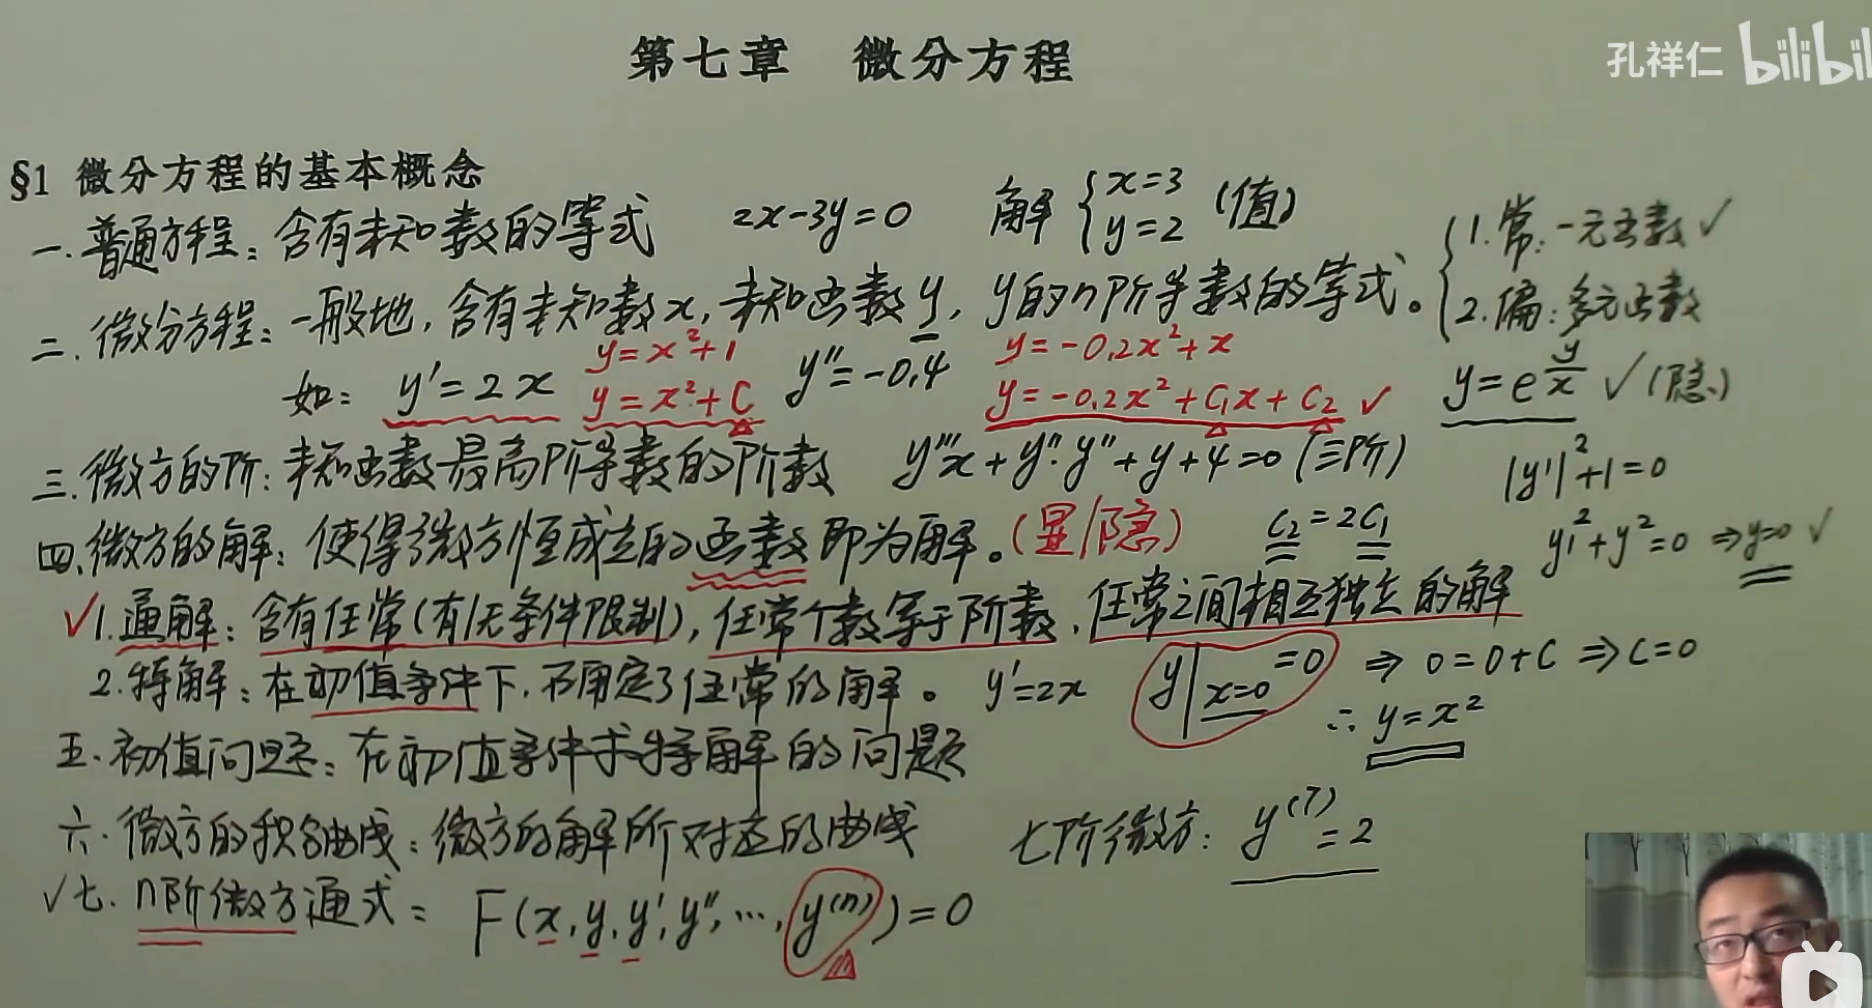 第七章 微分方程
孔祥仁 bilibil
§1 微分方程的基本概念
一.普通方程:含有未知数的等式 2x-3y=0 解{x=3 y=2 (值)
二.微分方程:一般地,含有未知数x,未知函数y,y的n阶导数的等式。{1.常:一元函数✓ 2.偏:多元函数
如: y'=2x y=x²+1 y=x²+C y''=-0.4 y=-0.2x²+x y=-0.2x²+C₁x+C₂ ✓ y=e^(y/x) ✓(隐)
三.微方的阶:未知函数最高阶导数的阶数 y'''x+y''·y''+y+4=0 (三阶) |y'|²+1=0
四.微方的解:使得微方恒成立的函数即为解。(显/隐) C₂=2C₁ y'²+y²=0 ⇒y=0 ✓
✓1.通解:含有任常(有/无条件限制),任常个数等于阶数,任常之间相互独立的解
2.特解:在初值条件下,不用定了任常的解。 y'=2x y|x=0 =0 ⇒ 0=0+C ⇒C=0
∴ y=x²
五.初值问题:在初值条件求特解的问题
六.微方的积分曲线:微方的解所对应的曲线 七阶微方: y⁽⁷⁾=2
✓七.n阶微方通式: F(x,y,y',y'',…,y⁽ⁿ⁾)=0